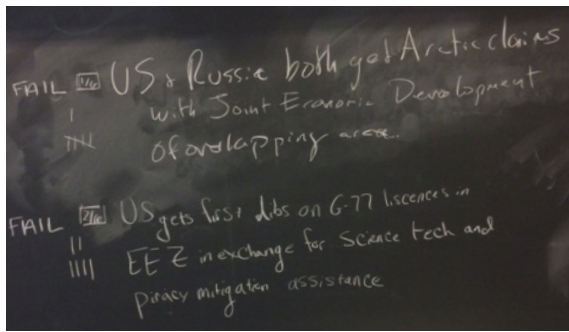 FAIL 1/6 US & Russia both get Arctic claims
I with Joint Economic Development
of overlapping area.
FAIL 2/6 US gets first dibs on G-77 liscences in
II EEZ in exchange for Science tech and
IIII piracy mitigation assistance